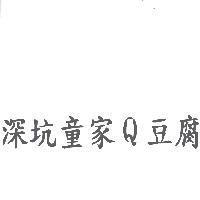 深坑童家Q豆腐